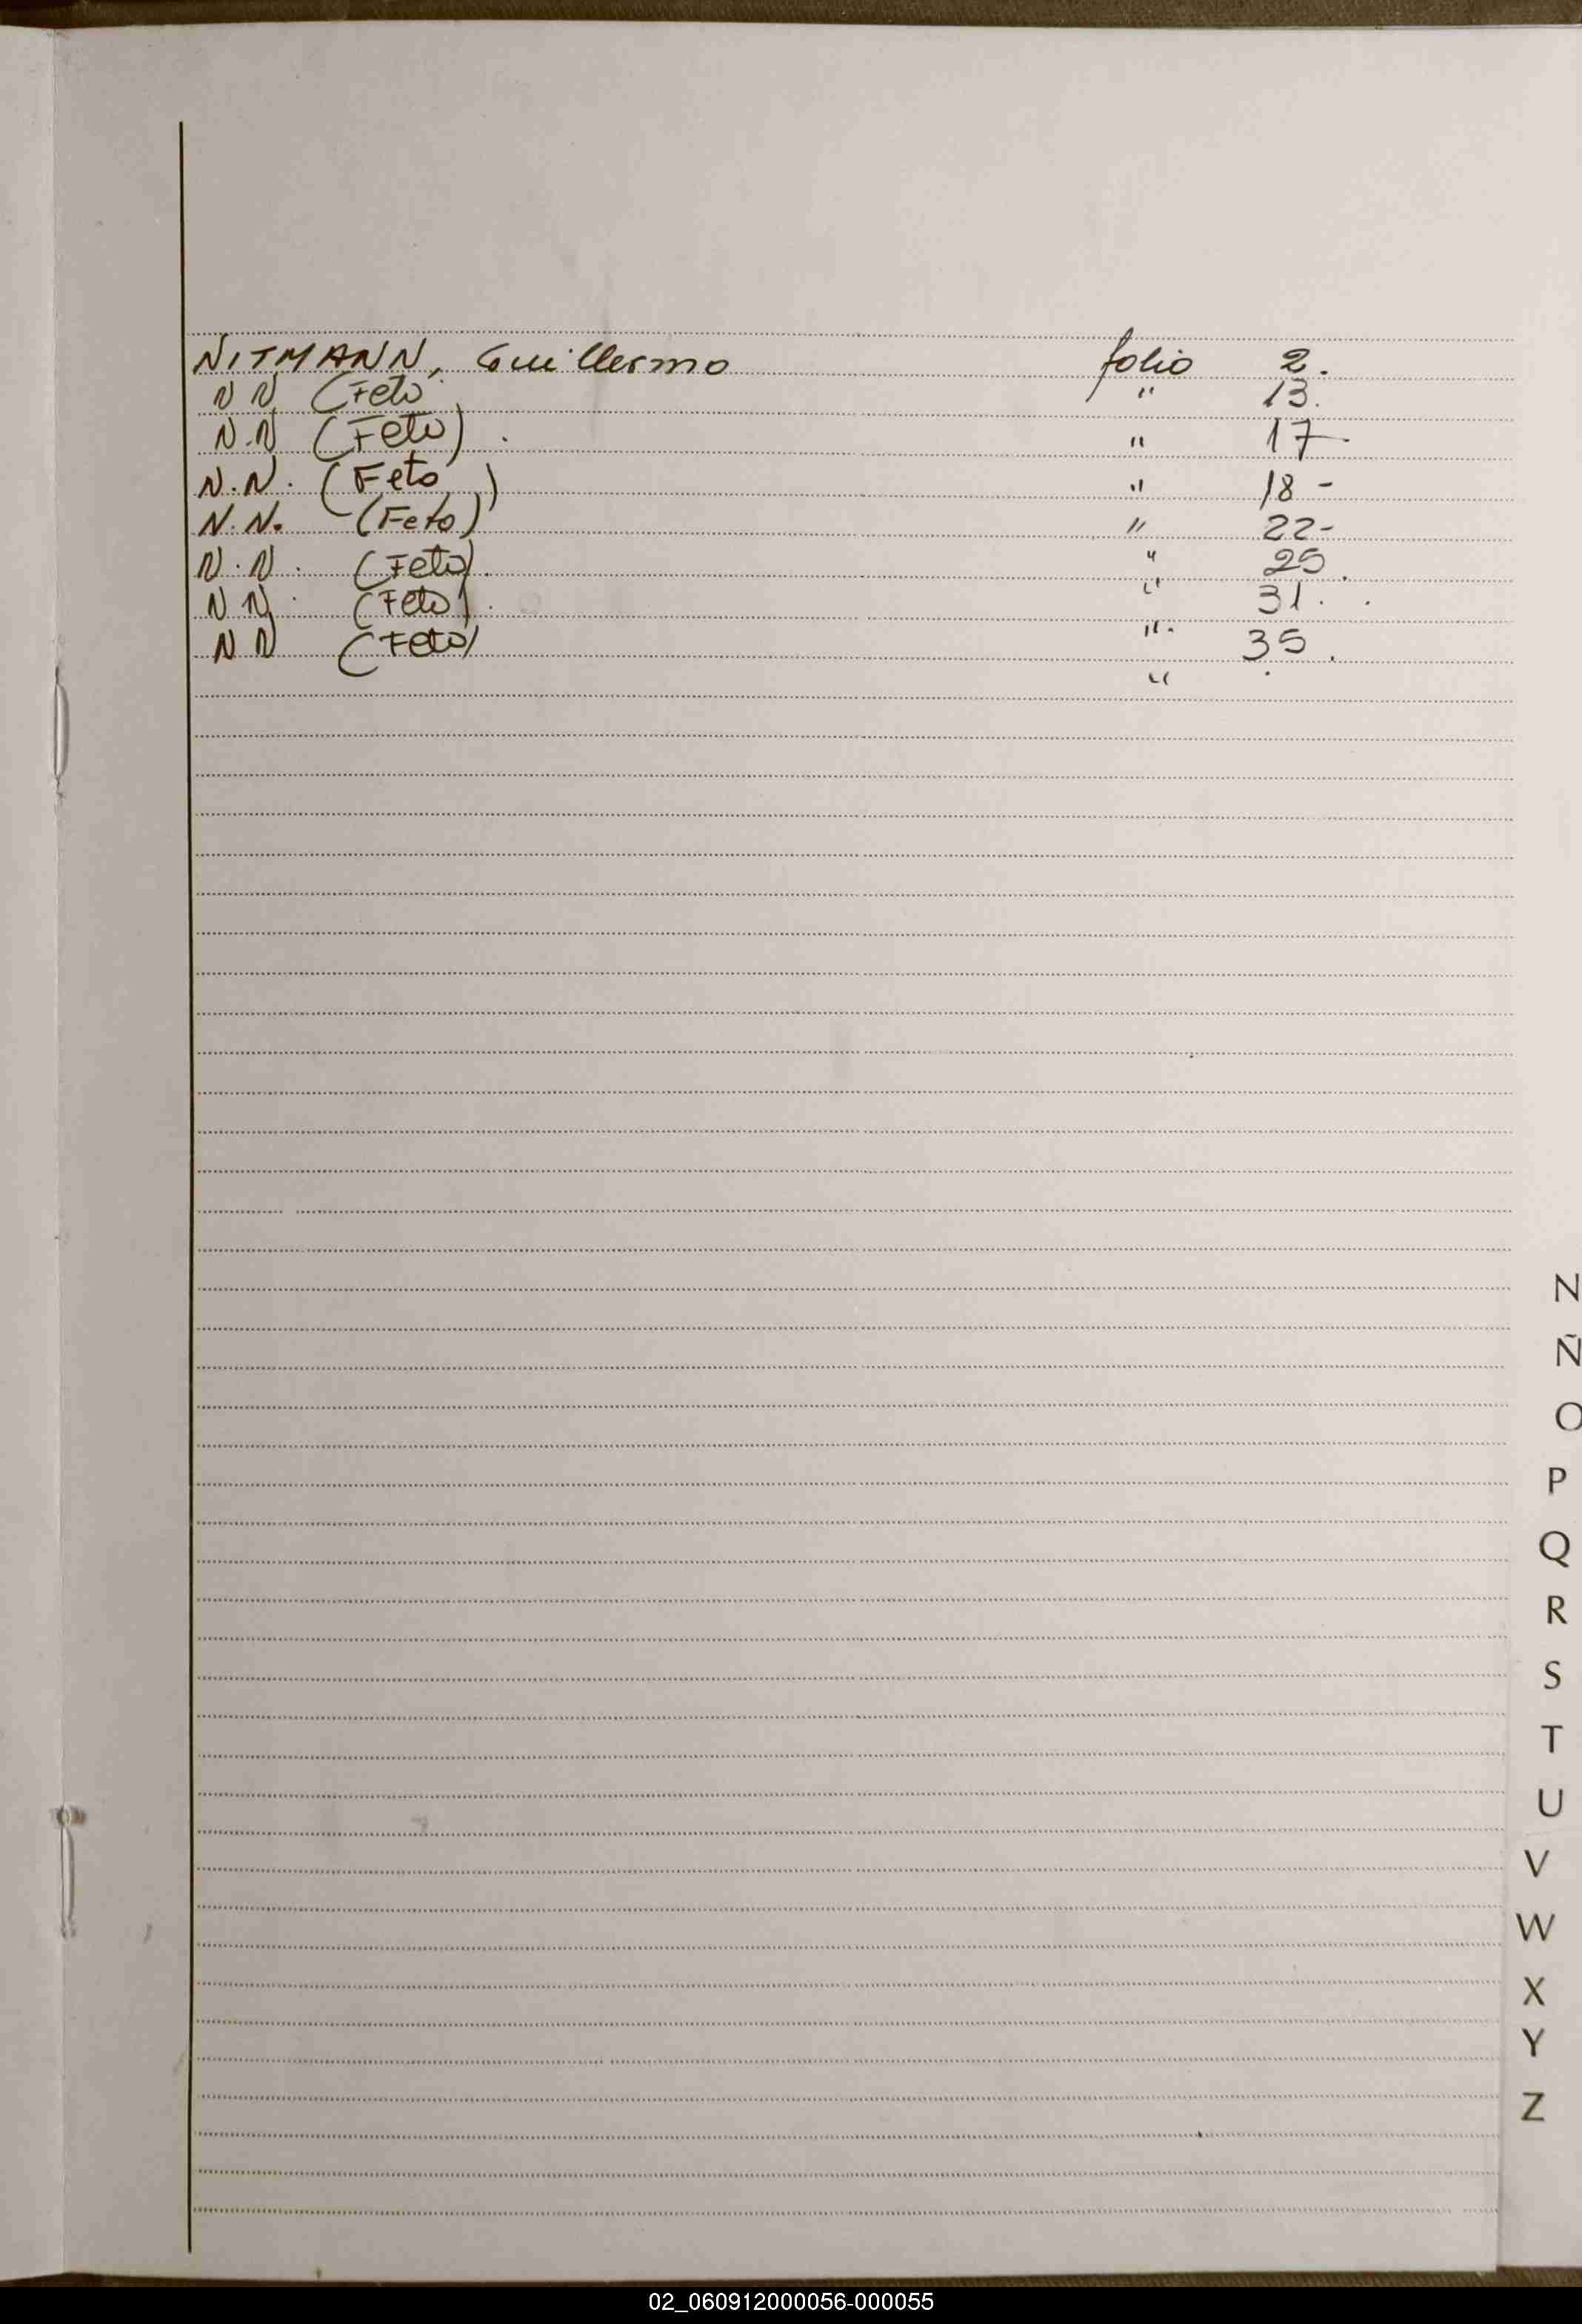 NITMANN, Guillermo folio 2.
N N (Feto " 13.
N.N (Feto) . " 17-
N.N. (Feto) " 18-
N.N. (Feto) " 22-
N.N. (Feto). " 25.
N N. (Feto). " 31.
N N (Feto) ". 35.
"
N
Ñ
O
P
Q
R
S
T
U
V
W
X
Y
Z
02_060912000056-000055